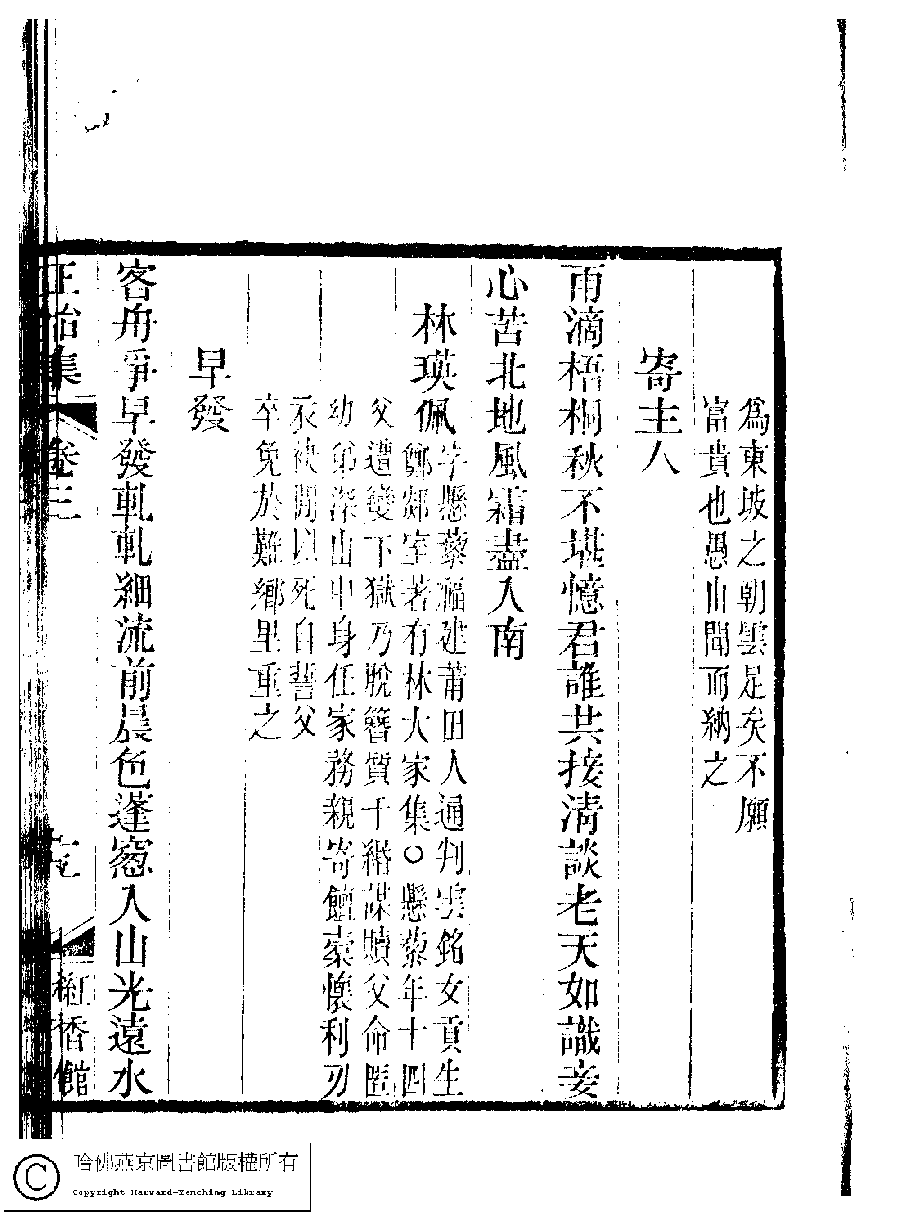 爲東坡之朝雲足矣不願
富貴也愚山聞而納之
寄主人
雨滴梧桐秋不堪憶君誰共接清談老天如識妾
心苦北地風霜盡入南
林瑛佩
字懸藜福建莆田人通判雲銘女貢生
鄭郯室著有林大家集○懸藜年十四
父遭變下獄乃脫簪質千緡謀贖父命匿
幼弟深山中身任家務親寄饘橐懷利刃
衣袂間以死自誓父
卒免於難鄉里重之
早發
客舟爭早發軋軋細流前晨色蓬窓入山光遠水
正始集
卷三
紅香館
哈佛燕京圖書館版權所有
Copyright Harvard-Yenching Library